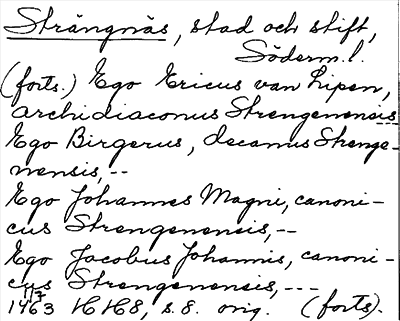 Strängnäs, stad och stift,
Söderm.l.
(forts.) Ego Ericus van Lipen,
archidiaconus Strengenensis,--
Ego Birgerus, decanus Strenge-
nensis,--
Ego Johannes Magni, canoni-
cus Strengenensis,--
Ego Jacobus Johannis, canoni-
cus Strengenensis,---
11/7
1463 HH8, s.8. orig. (forts).